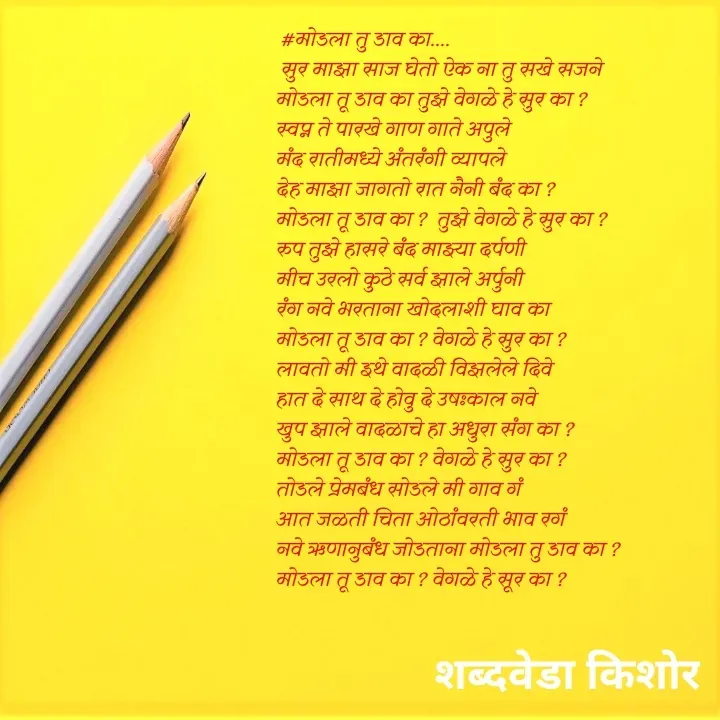 #मोडला तु डाव का....
सुर माझा साज घेतो ऐक ना तु सखे सजने
मोडला तू डाव का तुझे वेगळे हे सुर का ?
स्वप्न ते पारखे गाण गाते अपुले
मंद रातीमध्ये अंतरंगी व्यापले
देह माझा जागतो रात नैनी बंद का ?
मोडला तू डाव का ? तुझे वेगळे हे सुर का ?
रुप तुझे हासरे बंद माझ्या दर्पणी
मीच उरलो कुठे सर्व झाले अर्पुनी
रंग नवे भरताना खोदलाशी घाव का
मोडला तू डाव का ? वेगळे हे सुर का ?
लावतो मी इथे वादळी विझलेले दिवे
हात दे साथ दे होवु दे उषःकाल नवे
खुप झाले वादळाचे हा अधुरा संग का ?
मोडला तू डाव का ? वेगळे हे सुर का ?
तोडले प्रेमबंध सोडले मी गाव गं
आत जळती चिता ओठांवरती भाव रगं
नवे ऋणानुबंध जोडताना मोडला तु डाव का ?
मोडला तू डाव का ? वेगळे हे सूर का ?
शब्दवेडा किशोर